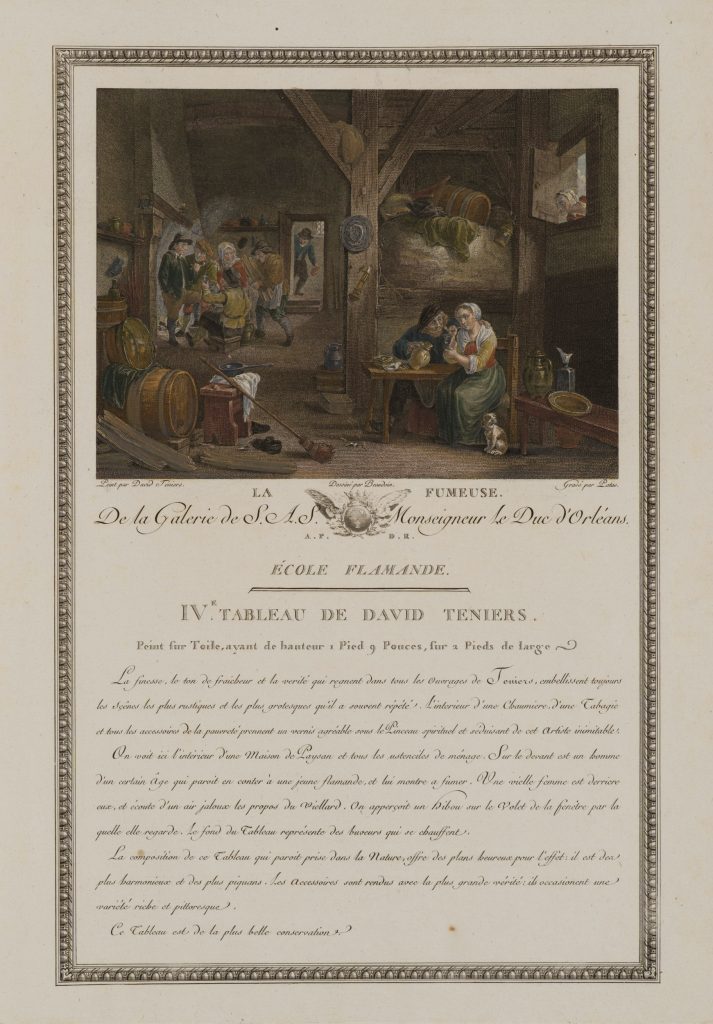 Peint par David Teniers. Dessiné par Beaudoin. Gravé par Patas.
LA FUMEUSE.
De la Galerie de S. A. S. Monseigneur le Duc d'Orléans.
A. P. D. R.
ÉCOLE FLAMANDE.
IV.E TABLEAU DE DAVID TENIERS.
Peint sur Toile, ayant de hauteur 1 Pied 9 Pouces, sur 2 Pieds de large
La finesse, le ton de fraicheur et la verité qui regnent dans tous les Ouvrages de Teniers, embellissent toujours
les Scènes les plus rustiques et les plus grotesques qu'il a souvent répété. L'interieur d'une Chaumière, d'une Tabagie
et tous les accessoires de la pauvreté prennent un vernis agréable sous le Pinceau spirituel et séduisant de cet Artiste inimitable.
On voit ici l'intérieur d'une Maison de Paysan et tous les ustenciles de ménage. Sur le devant est un homme
d'un certain Âge qui paroit en conter à une jeune flamande, et lui montre a fumer. Une vielle femme est derriere
eux, et écoute d'un air jaloux les propos du Viellard. On apperçoit un Hibou sur le Volet de la fenêtre par la
quelle elle regarde. Le fond du Tableau représente des buveurs qui se chauffent.
La composition de ce Tableau qui paroit prise dans la Nature, offre des plans heureux pour l'effét: il est des
plus harmonieux et des plus piquans. Les Accessoires sont rendus avec la plus grande vérité: ils occasionent une
variété riche et pittoresque.
Ce Tableau est de la plus belle conservation.